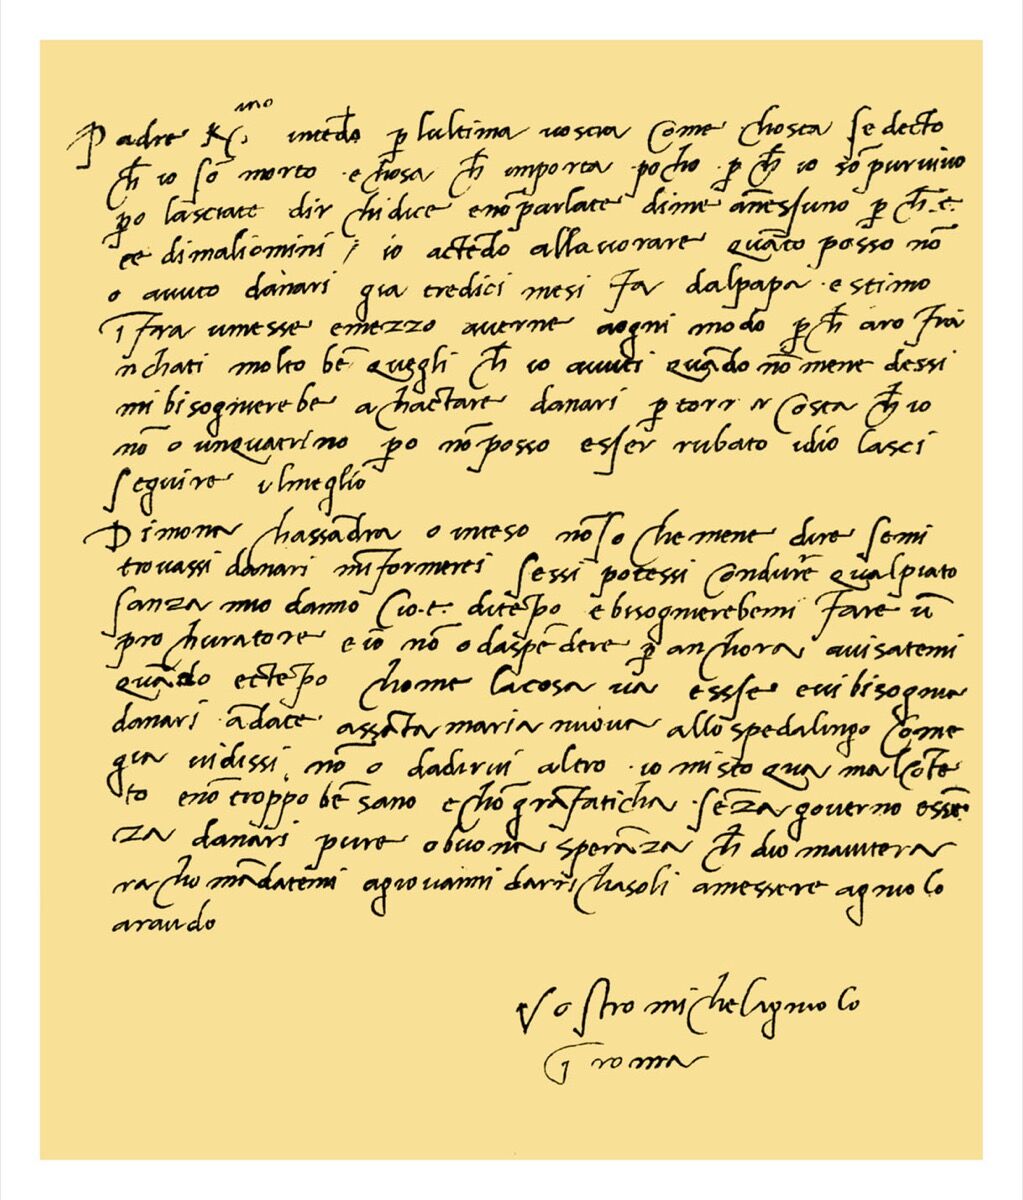 Padre K(mo intēdo p̄ lultima vostra Come chosta se decto
ch̄ io sō morto e chosa ch̄ importa pocho p̄ ch̄ io sō pur vivo
p̄o lasciate dir chi dice e nō parlate di me a nessuno p̄ ch̄ e
ce di mali omini / io actēdo allavorare quāto posso nō
o avuto danari gia tredici mesi fa dal papa e stimo
ī fra u mese e mezzo averne a ogni modo p̄ ch̄ aro frā
chati molto bē quegli ch̄ io avuti quādo nō me ne dessi
mi bisognierebe achactare danari p̄ tornar costa ch̄ io
nō o un quatrino p̄o nō posso esser rubato idio lasci
seguire il meglio
Di mona chassādra o inteso nō so che me ne dire se mi
trovassi danari mīformerei sessi potessi condure qua il piato
sanza mio danno cioe di tēpo e bisognierebemi fare ū
prochuratore e io nō o da spēdere p̄ anchora avisatemi
quādo e tēpo chome la cosa va e se e vi bisognia
danari ādate a sācta maria nuova allo spedalingo come
gia vi dissi nō o da dirvi altro io mi sto qua mal cōtē
to e nō troppo bē sano e chō grā faticha sēza governo e sē
za danari pure o buona sperāza ch̄ dio maiutera
rachomādatemi a giovanni da richasoli a messere agniolo
araldo
Vostro michelagniolo
ī roma